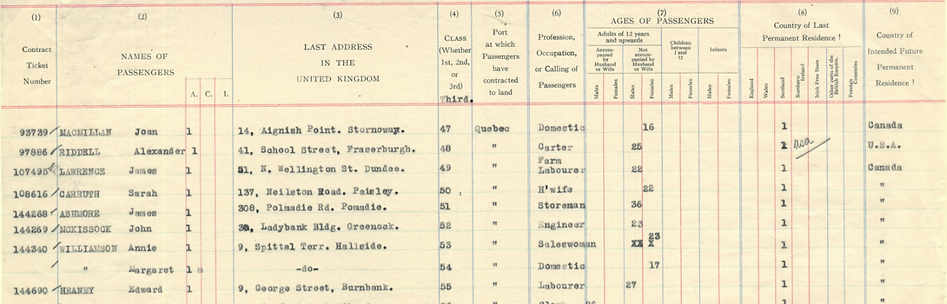 (1) (2) (3) (4) (5) (6) (7) (8) (9)
Contract Ticket Number
NAMES OF PASSENGERS
A. C. I.
LAST ADDRESS IN THE UNITED KINGDOM
CLASS (Whether 1st, 2nd, or 3rd)
Third.
Port at which Passengers have contracted to land
Profession, Occupation, or Calling of Passengers
AGES OF PASSENGERS
Adults of 12 years and upwards
Accompanied by Husband or Wife
Not accompanied by Husband or Wife
Children between 1 and 12
Infants
Males Females Males Females Males Females Males Females
Country of Last Permanent Residence †
England Wales Scotland Northern Ireland Irish Free State Other parts of the British Empire Foreign Countries
Country of Intended Future Permanent Residence †
93739 MACMILLAN Joan 1 14, Aignish Point. Stornoway. 47 Quebec Domestic 16 1 Canada
97886 RIDDELL Alexander 1 41, School Street, Fraserburgh. 48 " Carter 25 1 USA U.S.A.
107495 LAWRENCE James 1 51, N. Wellington St. Dundee. 49 " Farm Labourer 22 1 Canada
108616 CARRUTH Sarah 1 137, Neilston Road. Paisley. 50 " H'wife 22 1 "
144268 ASHMORE James 1 308, Polmadie Rd. Pomadie. 51 " Storeman 36 1 "
144269 MCKISSOCK John 1 Ladybank Bldg. Greenock. 52 " Engineer 23 1 "
144340 WILLIAMSON Annie 1 9, Spittal Terr. Hallside. 53 " Saleswoman XX X 23 1 "
" Margaret 1 m -do- 54 " Domestic 17 1 "
144690 HEANEY Edward 1 9, George Street, Burnbank. 55 " Labourer 27 1 "